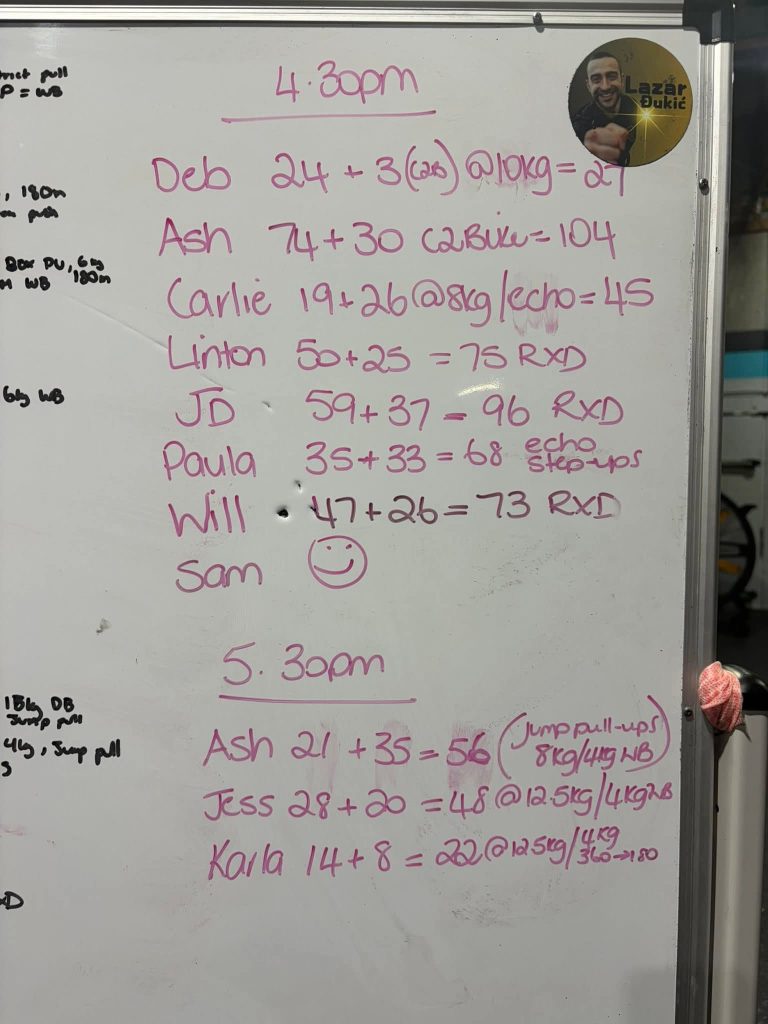 4.30pm
Lazar
Đukić
Deb 24 + 3 (C2B) @10kg = 27
Ash 74 + 30 C2Bike = 104
Carlie 19 + 26 @8kg/echo = 45
Linton 50 + 25 = 75 RXD
JD 59 + 37 = 96 RXD
Paula 35 + 33 = 68 echo step-ups
Will 47 + 26 = 73 RXD
Sam
5.30pm
Ash 21 + 35 = 56 (Jump pull-ups 8kg/4kg WB)
Jess 28 + 20 = 48 @12.5kg/4kg WB
Karla 14 + 8 = 22 @12.5kg/4kg 360→180
pull
P = WB
, 180m
push
Box PU, 6kg
WB 180m
6kg WB
15kg DB
Jump pull
4kg, Jump pull